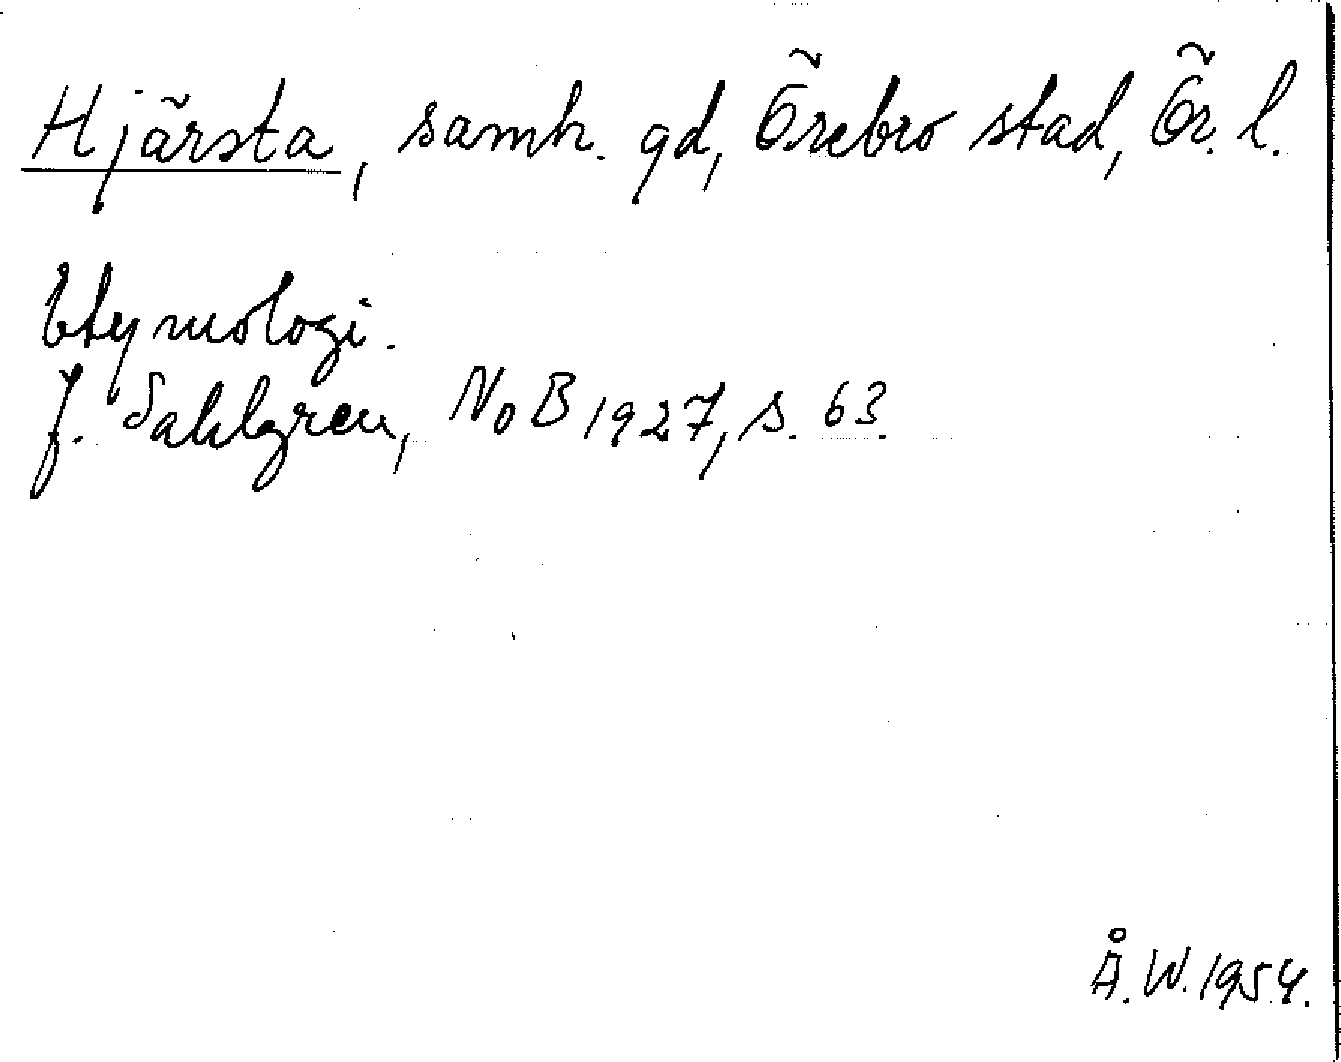 Hjärsta, samh. gd, Örebro stad, Ör. l.
Etymologi.
J. Sahlgren, NoB 1927, s. 63.
Å.W. 1954.